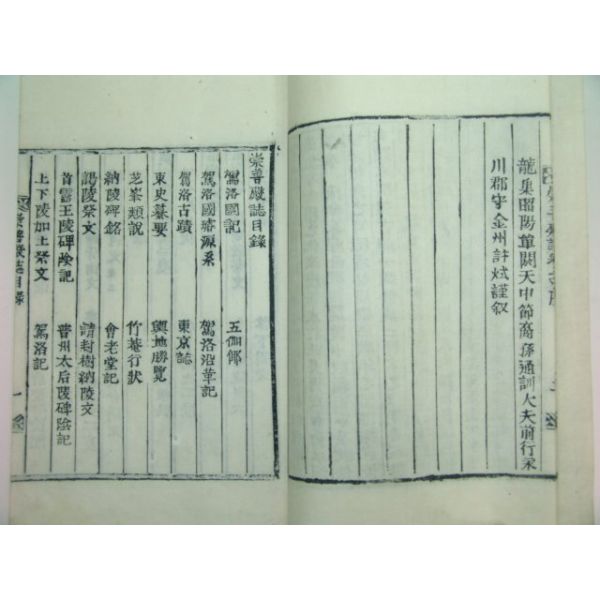 龍集昭陽單閼天中節裔孫通訓大夫前行泉
川郡守金州許烒謹叙
崇善殿誌目錄
駕洛國記 五伽倻
駕洛國璿源系 駕洛沿革記
駕洛古蹟 東京誌
東史綦要 輿地勝覽
芝峯類說 竹菴行狀
納陵碑銘 會老堂記
謁陵祭文 請封樹納陵文
首露王陵碑陰記 普州太后陵碑陰記
上下陵加土祭文 駕洛記
崇善殿誌目錄 一